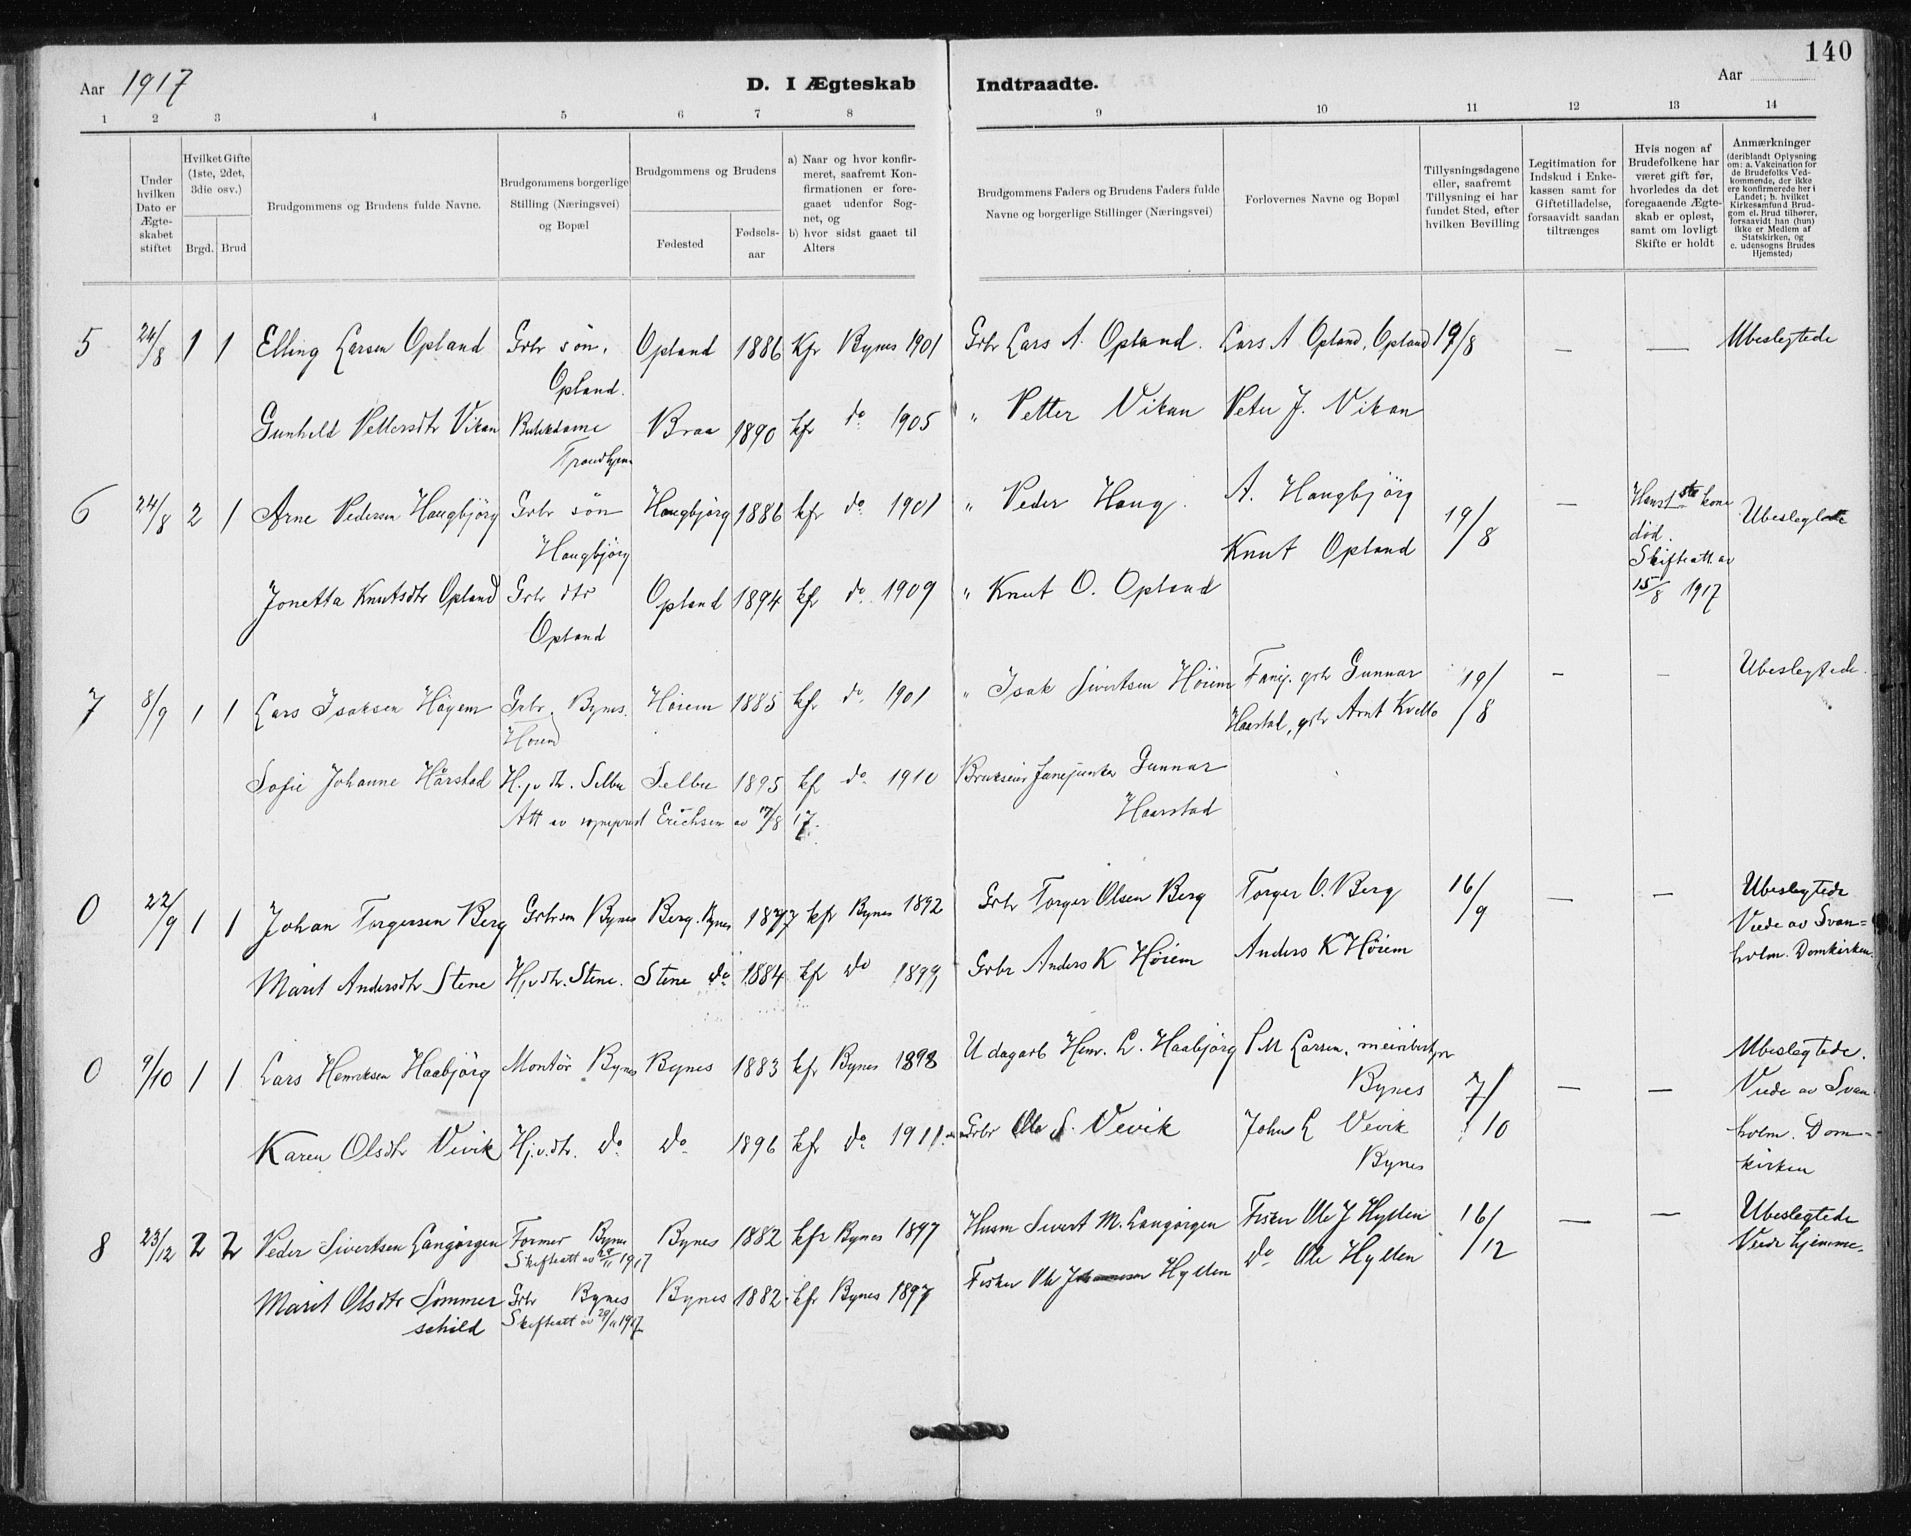 140
Aar 1917 D. I Ægteskab Indtraadte. Aar
1 2 3 4 5 6 7 8 9 10 11 12 13 14
Under hvilken Dato er Ægteskabet stiftet
Hvilket Gifte (1ste, 2det, 3die osv.)
Brgd. Brud
Brudgommens og Brudens fulde Navne.
Brudgommens borgerlige Stilling (Næringsvei) og Bopæl
Brudgommens og Brudens
Fødested
Fødsels-aar
a) Naar og hvor konfir-
meret, saafremt Kon-
firmationen er fore-
gaaet udenfor Sog-
net, og
b) hvor sidst gaaet til
Alters
Brudgommens Faders og Brudens Faders fulde
Navne og borgerlige Stillinger (Næringsvei)
Forlovernes Navne og Bopæl
Tillysningsdagene
eller, saafremt
Tillysning ei har
fundet Sted, efter
hvilken Bevilling
Legitimation for
Indskud i Enke-
kassen samt for
Giftetilladelse,
forsaavidt saadan
tiltrænges
Hvis nogen af
Brudefolkene har
været gift før,
hvorledes da det
foregaaende Ægte-
skab er opløst,
samt om lovligt
Skifte er holdt
Anmærkninger
(deriblandt Oplysning
om: a. Vakcination for
de Brudefolks Ved-
kommende, der ikke
ere konfirmerede her i
Landet; b. hvilket
Kirkesamfund Brud-
gom el. Brud tilhører,
forsaavidt han (hun)
ikke er Medlem af
Statskirken, og
c. udensogns Brudes
Hjemsted)
5 24/8 1 1 Elling Larsen Opland Grbr søn, Opland 1886 Kfr Bynes 1901 Grbr Lars A. Opland. Lars A Opland, Opland 19/8 — — Ubeslegtede
Opland.
Gunhild Pettersdtr Vikan Butikdame Braa 1890 kfr do 1905 " Petter Vikan Peter J. Vikan
Trondhjem
6 24/8 2 1 Arne Pedersen Haugbjørg Grbr søn Haugbjørg 1886 kfr do 1901 " Peder Haug. A. Haugbjørg 19/8 — Hans 1ste kone Ubeslegtede
Haugbjørg Knut Opland død.
Skifteatt. av
Jonetta Knutsdtr Opland Grbr dtr Opland 1894 kfr do 1909 " Knut O. Opland 15/8 1917
Opland
7 8/9 1 1 Lars Isaksen Høyem Grbr. Bynes. Høiem 1885 kfr do 1901 " Isak Sivertsen Høiem Fanej. grbr Gunnar 19/8 — — Ubeslegtede.
Høiem Haarstad, grbr Arnt Kvello
Sofie Johanne Hårstad Hj.v. dtr. Selbu Selbu 1895 kf do 1910 Brukseier fanejunker Gunnar
Att av sogneprest Erichsen av 17/8 17. Haarstad
0 22/9 1 1 Johan Torgersen Berg Grbrsøn Bynes Berg. Bynes 1877 kfr Bynes 1892 Grbr Torger Olsen Berg Torger O. Berg 16/9 — — Ubeslegtede
Viede av Svan=
Marit Andersdtr Stene Hj.v.dtr. Stene. Stene do 1884 kfr do 1899 Grbr Anders K Høiem Anders K Høiem holm. Domkirken.
0 9/10 1 1 Lars Henriksen Haabjörg Montør Bynes Bynes 1883 kfr Bynes 1898 Udagarb Henr. L. Haabjörg P M Larsen, meieribestyr 7/10 — — Ubeslegtede.
Bynes Viede av Svan-
Karen Olsdtr Vevik Hj.v.dtr. do do 1896 kfr do 1911. Grbr Ole S. Vevik John L Vevik holm. Dom-
Bynes kirken
8 23/12 2 2 Peder Sivertsen Langørgen Former Bynes Bynes 1882 kfr Bynes 1897 Husm Sivert M. Langørgen Fisker Ole J Hylten 16/12 — — Ubeslegtede
Skifteatt av 29/11 1917 Viede hjemme.
Marit Olsdtr Sommer Grbr Bynes Bynes 1882 kfr Bynes 1897 Fisker Ole Johannesen Hylten do Ole Hylten
schild Skifteatt av 29/11 1917